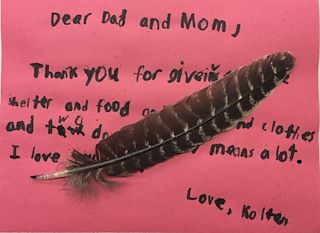 Dear Dad and Mom,
Thank you for
shelter and food
and two do nd clothes
I love means a lot.
Love, Kolten